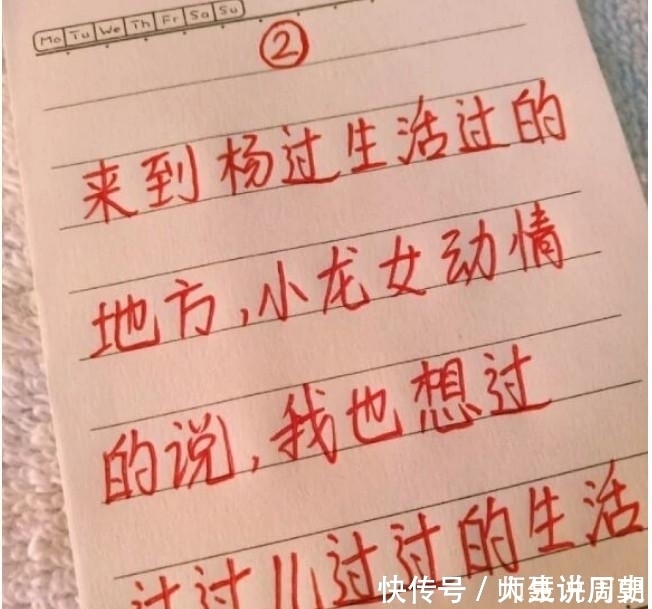 Mo Tu We Th Fr Sa Su
②
来到杨过生活过的
地方,小龙女动情
的说,我也想过
过过儿过过的生活
快传号/